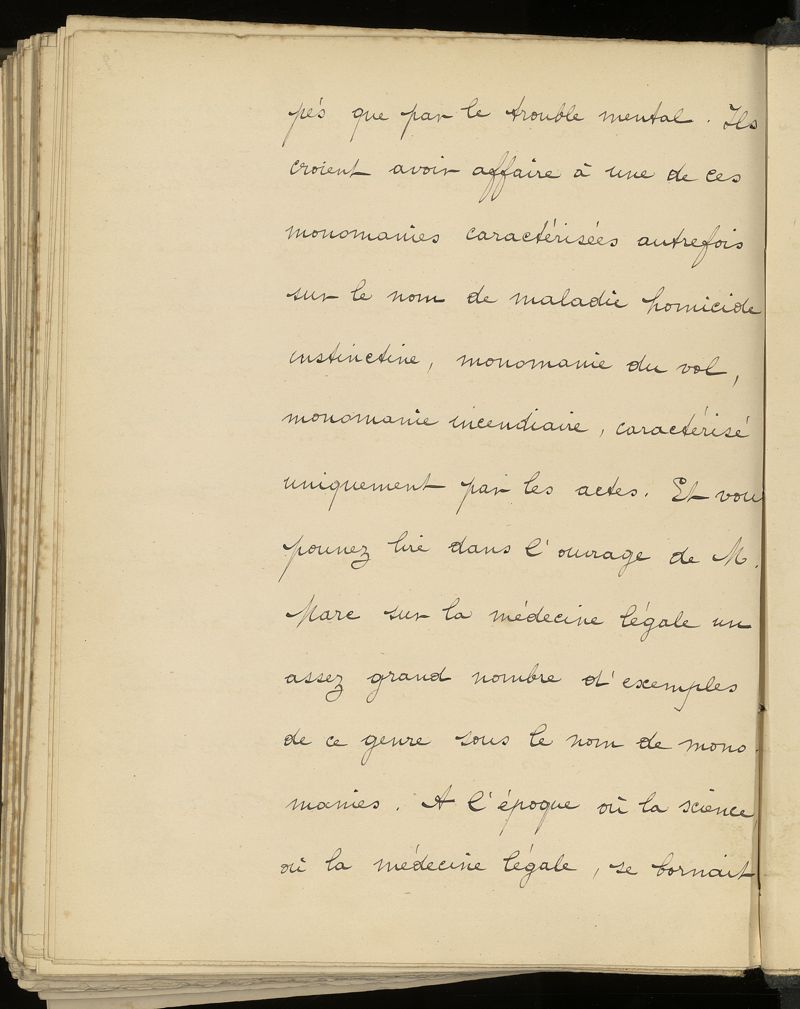 pés que par le trouble mental. Ils
croient avoir affaire à une de ces
monomanies caractérisées autrefois
sur le nom de maladie homicide
instinctive, monomanie du vol,
monomanie incendiaire, caractérisé
uniquement par les actes. Et vou
pouvez lire dans l'ouvrage de M.
Marc sur la médecine légale un
assez grand nombre d'exemples
de ce genre sous le nom de mono-
manies. A l'époque où la science
où la médecine légale, se bornait